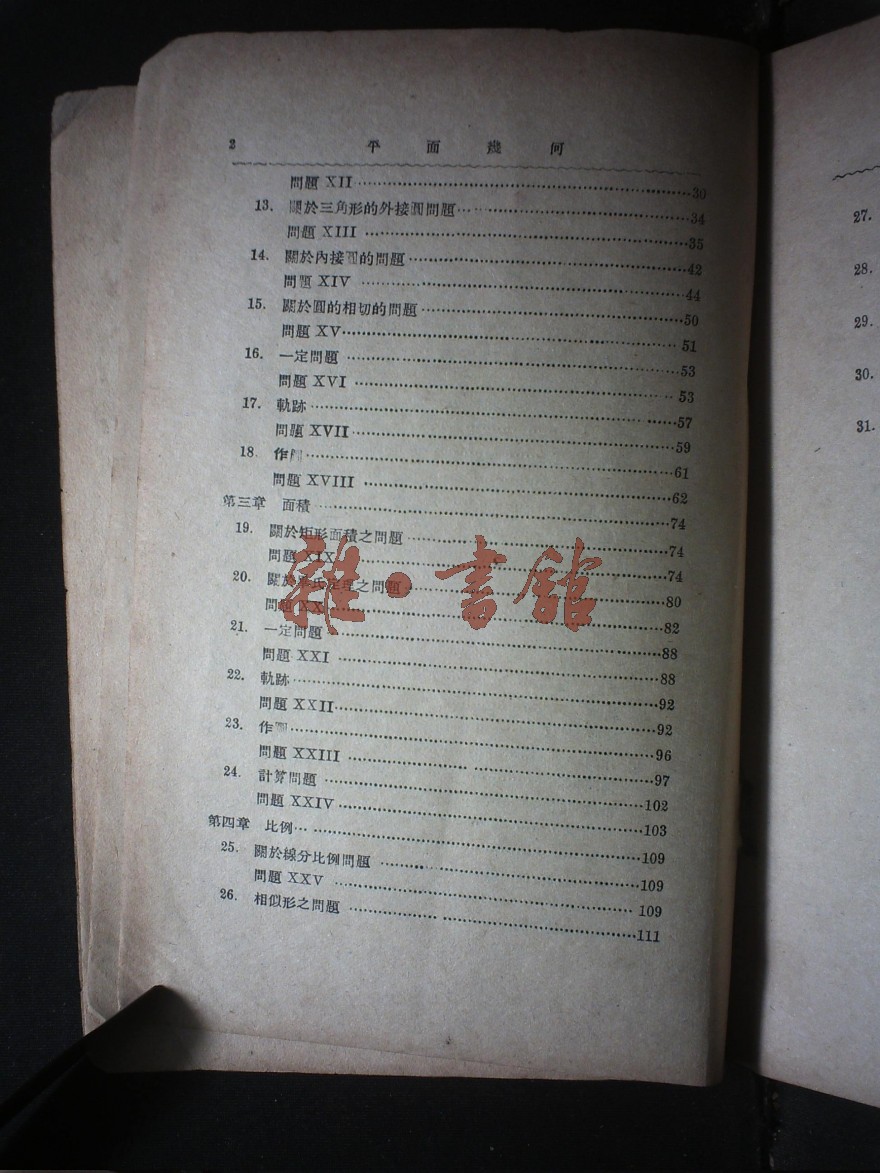 2 平面幾何
問題 XII 30
13. 關於三角形的外接圓問題 34
問題 XIII 35
14. 關於內接圓的問題 42
問題 XIV 44
15. 關於圓的相切的問題 50
問題 XV 51
16. 一定問題 53
問題 XVI 53
17. 軌跡 57
問題 XVII 59
18. 作 61
問題 XVIII 62
第三章 面積 74
19. 關於矩形面積之問題 74
問題 XIX 74
20. 關於畢氏定理之問題 80
問題 XX 82
21. 一定問題 88
問題 XXI 88
22. 軌跡 92
問題 XXII 92
23. 作 96
問題 XXIII 97
24. 計算問題 102
問題 XXIV 103
第四章 比例 109
25. 關於線分比例問題 109
問題 XXV 109
26. 相似形之問題 111
雜·書館
27.
28.
29.
30.
31.